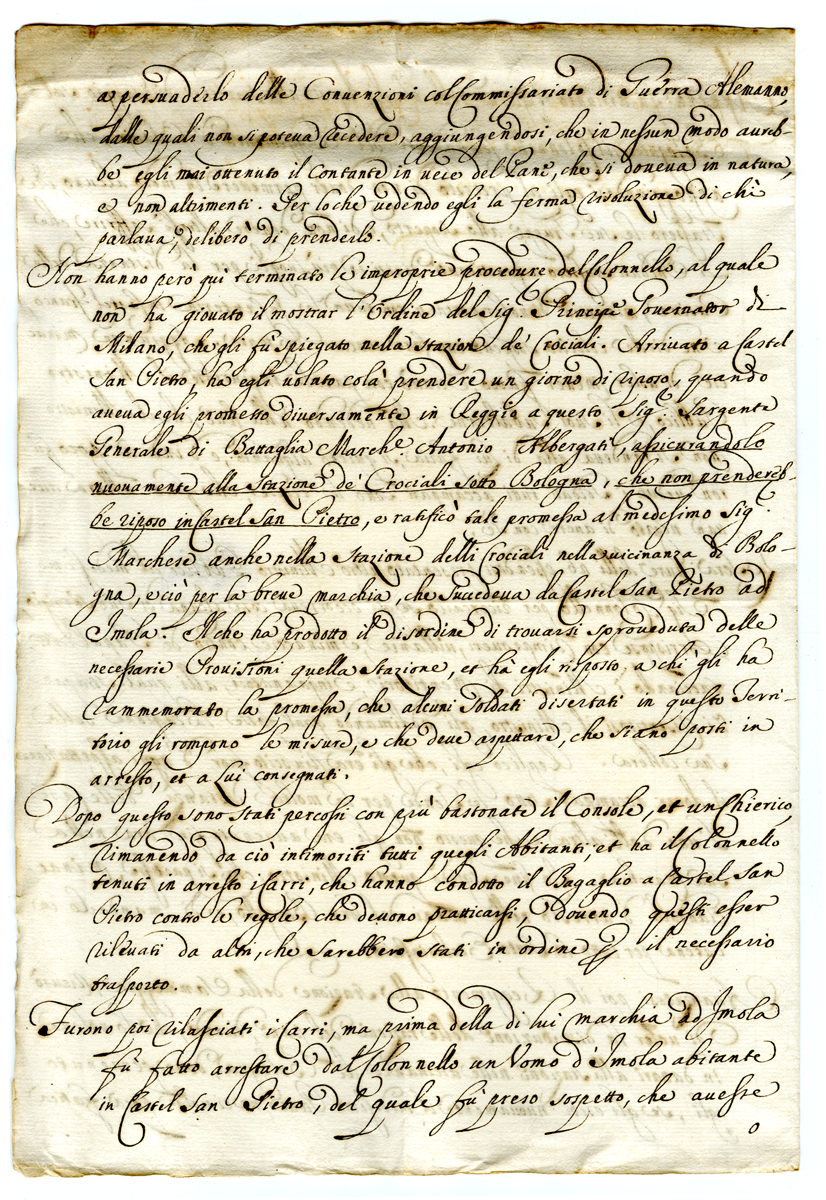 a persuaderlo delle Convenzioni col Commissariato di Guerra Alemanno,
dalle quali non si poteva recedere, aggiungendosi, che in nessun modo avreb-
be egli mai ottenuto il Contante in vece del Pane, che si doveva in natura,
e non altrimenti. Per loche vedendo egli la ferma risoluzione di chi
parlava, deliberò di prenderlo.
Non hanno però qui terminato le improprie procedure del Colonnello, al quale
non ha giovato il mostrar l'Ordine del Sig.r Principe Governator di
Milano, che gli fù spiegato nella Stazion de' Crociali. Arrivato a Castel
San Pietro, ha egli voluto colà prendere un giorno di riposo, quando
aveva egli promesso diversamente in Reggio a questo Sig.r Sargente
Generale di Battaglia March.e Antonio Albergati, assicurandolo
nuovamente alla Stazione de' Crociali sotto Bologna, che non prendereb-
be riposo in Castel San Pietro, e ratificò tale promessa al medesimo Sig.r
Marchese anche nella Stazione delli Crociali nella vicinanza di Bolo-
gna, e ciò per la breve marchia, che succedeva da Castel San Pietro ad
Imola. Il che ha prodotto il disordine di trovarsi sproveduta delle
necessarie Provisioni quella Stazione, et hà egli risposto a chi gli ha
rammemorato la promessa, che alcuni Soldati disertati in questo Terri-
torio gli rompono le misure, e che deve aspettare, che siano posti in
arresto, et a Lui consegnati.
Dopo questo sono stati percossi con più bastonate il Console, et un Chierico,
rimanendo da ciò intimoriti tutti quegli Abitanti; et ha il Colonnello
tenuti in arresto i Carri, che hanno condotto il Bagaglio a Castel San
Pietro contro le regole, che devono pratticarsi, dovendo questi esser
rilevati da altri, che sarebbero stati in ordine per il necessario
trasporto.
Furono poi rilasciati i Carri, ma prima della di lui marchia ad Imola
fù fatto arrestare dal Colonnello un Vomo d'Imola abitante
in Castel San Pietro, del quale fù preso sospetto, che avesse
o